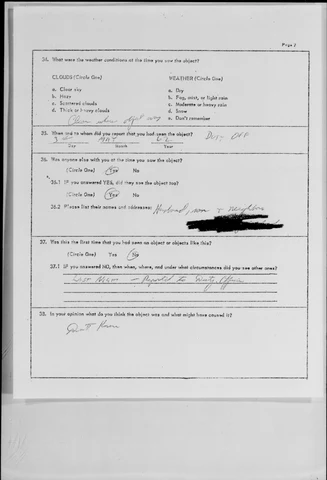 Page 3
34. What were the weather conditions at the time you saw the object?
CLOUDS (Circle One) WEATHER (Circle One)
a. Clear sky a. Dry
b. Hazy b. Fog, mist, or light rain
c. Scattered clouds c. Moderate or heavy rain
d. Thick or heavy clouds d. Snow
e. Don't remember
Clear when object was
35. When and to whom did you report that you had seen the object?
Day Month Year
36. Was anyone else with you at the time you saw the object?
(Circle One) Yes No
36.1 IF you answered YES, did they see the object too?
(Circle One) Yes No
36.2 Please list their names and addresses: Husband, son & neighbor
37. Was this the first time that you had seen an object or objects like this?
(Circle One) Yes No
37.1 IF you answered NO, then when, where, and under what circumstances did you see other ones?
Reported to
38. In your opinion what do you think the object was and what might have caused it?
Don't Know